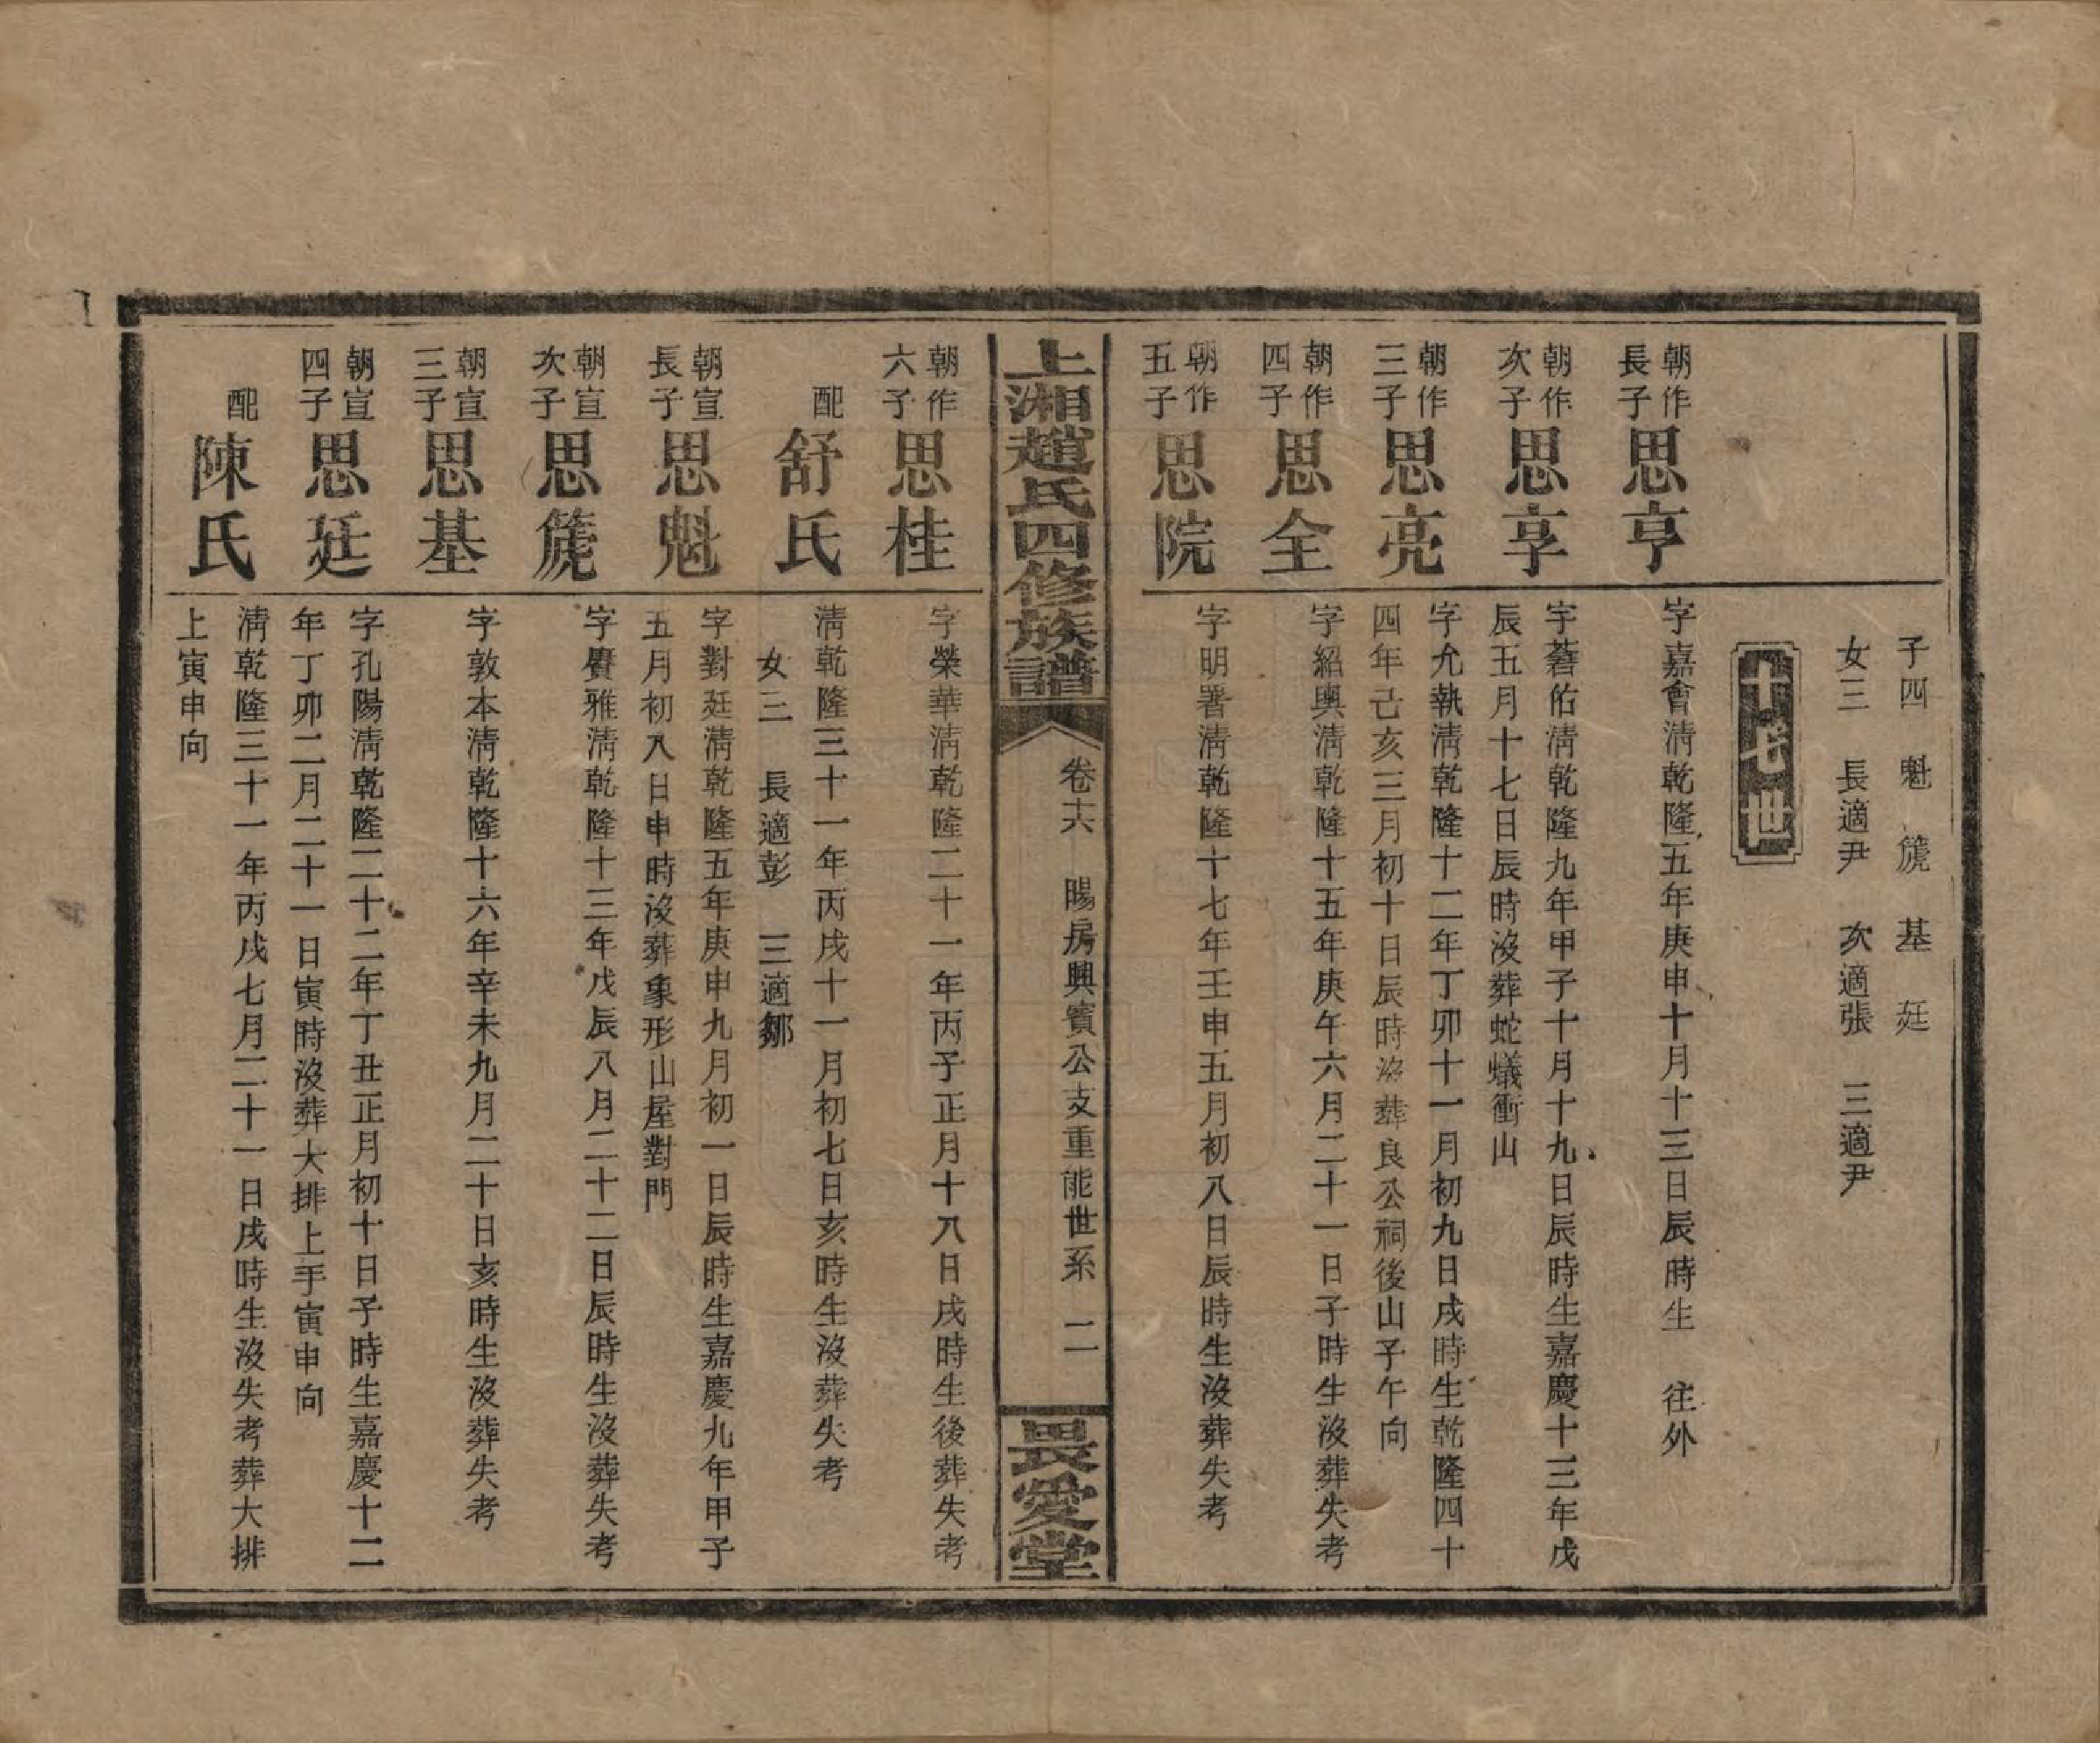 子四　魁　箎　基　廷
女三　長適尹　次適張　三適尹
十七世
朝作
長子
思亨
字嘉會淸乾隆五年庚申十月十三日辰時生　往外
朝作
次子
思享
字蓍佑淸乾隆九年甲子十月十九日辰時生嘉慶十三年戊
辰五月十七日辰時沒葬蛇蟻衝山
朝作
三子
思亮
字允執淸乾隆十二年丁卯十一月初九日戌時生乾隆四十
四年己亥三月初十日辰時沒葬良公祠後山子午向
朝作
四子
思全
字紹輿淸乾隆十五年庚午六月二十一日子時生沒葬失考
朝作
五子
思院
字明署淸乾隆十七年壬申五月初八日辰時生沒葬失考
上湘趙氏四修族譜
卷十六　暘房興賓公支重能世系　二
畏愛堂
朝作
六子
思桂
字榮華淸乾隆二十一年丙子正月十八日戌時生後葬失考
配
舒氏
淸乾隆三十一年丙戌十一月初七日亥時生沒葬失考
女三　長適彭　三適鄒
朝宣
長子
思魁
字對廷淸乾隆五年庚申九月初一日辰時生嘉慶九年甲子
五月初八日申時沒葬象形山屋對門
朝宣
次子
思箎
字賡雅淸乾隆十三年戊辰八月二十二日辰時生沒葬失考
朝宣
三子
思基
字敦本淸乾隆十六年辛未九月二十日亥時生沒葬失考
朝宣
四子
思廷
字孔陽淸乾隆二十二年丁丑正月初十日子時生嘉慶十二
年丁卯二月二十一日寅時沒葬大排上手寅申向
配
陳氏
淸乾隆三十一年丙戌七月二十一日戌時生沒失考葬大排
上寅申向